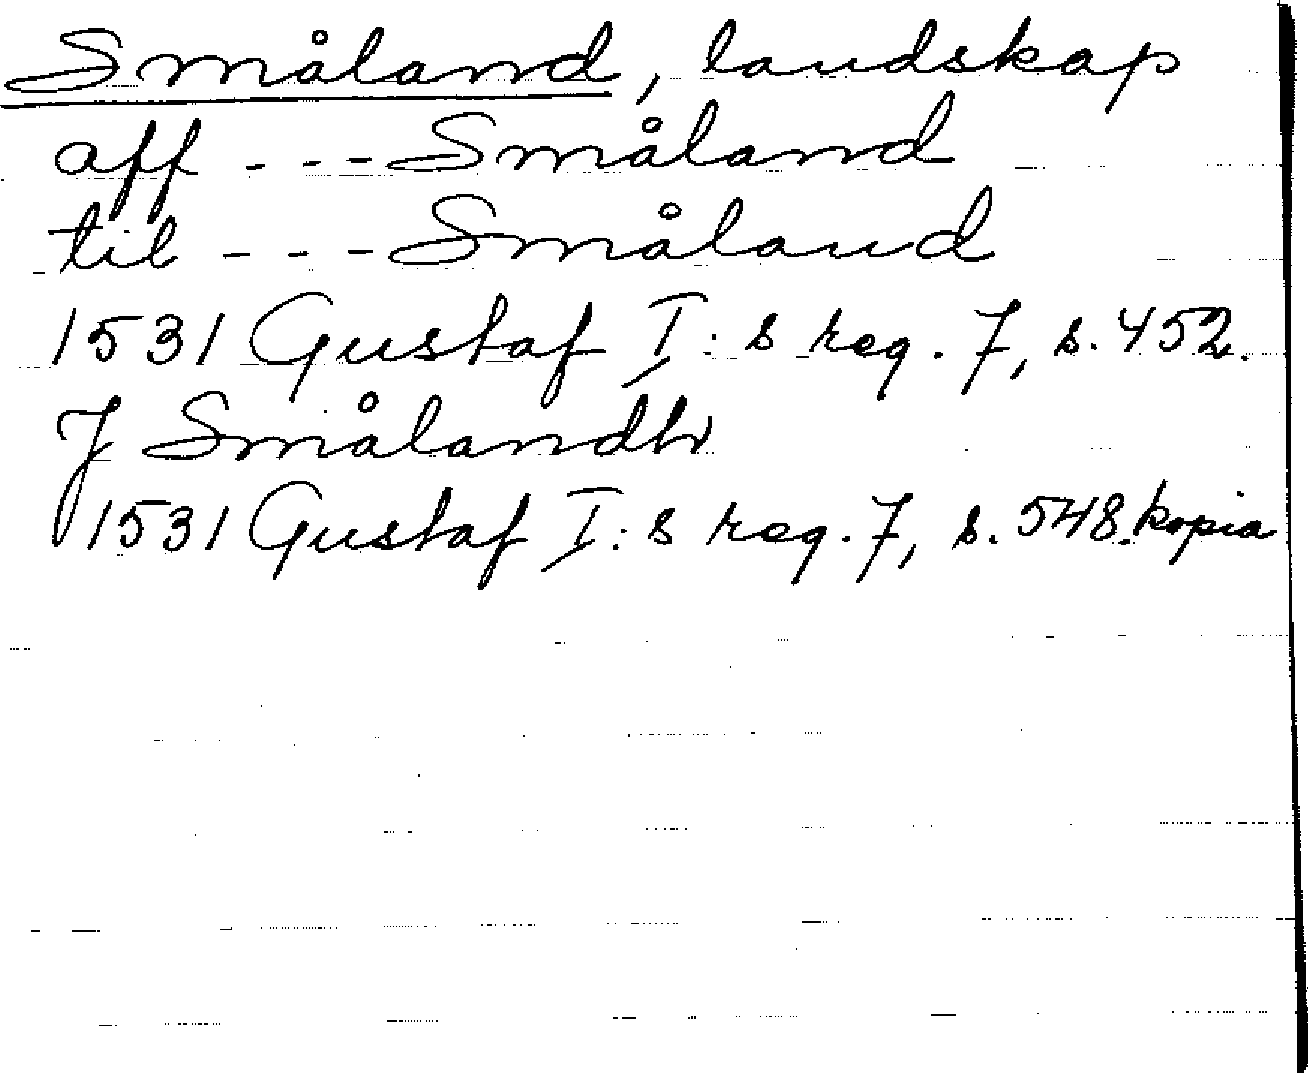 Småland, landskap
aff - - - Småland
til - - - Småland
1531 Gustaf I:s reg. 7, s. 452.
J Smålandh
1531 Gustaf I:s reg. 7, s. 548. kopia